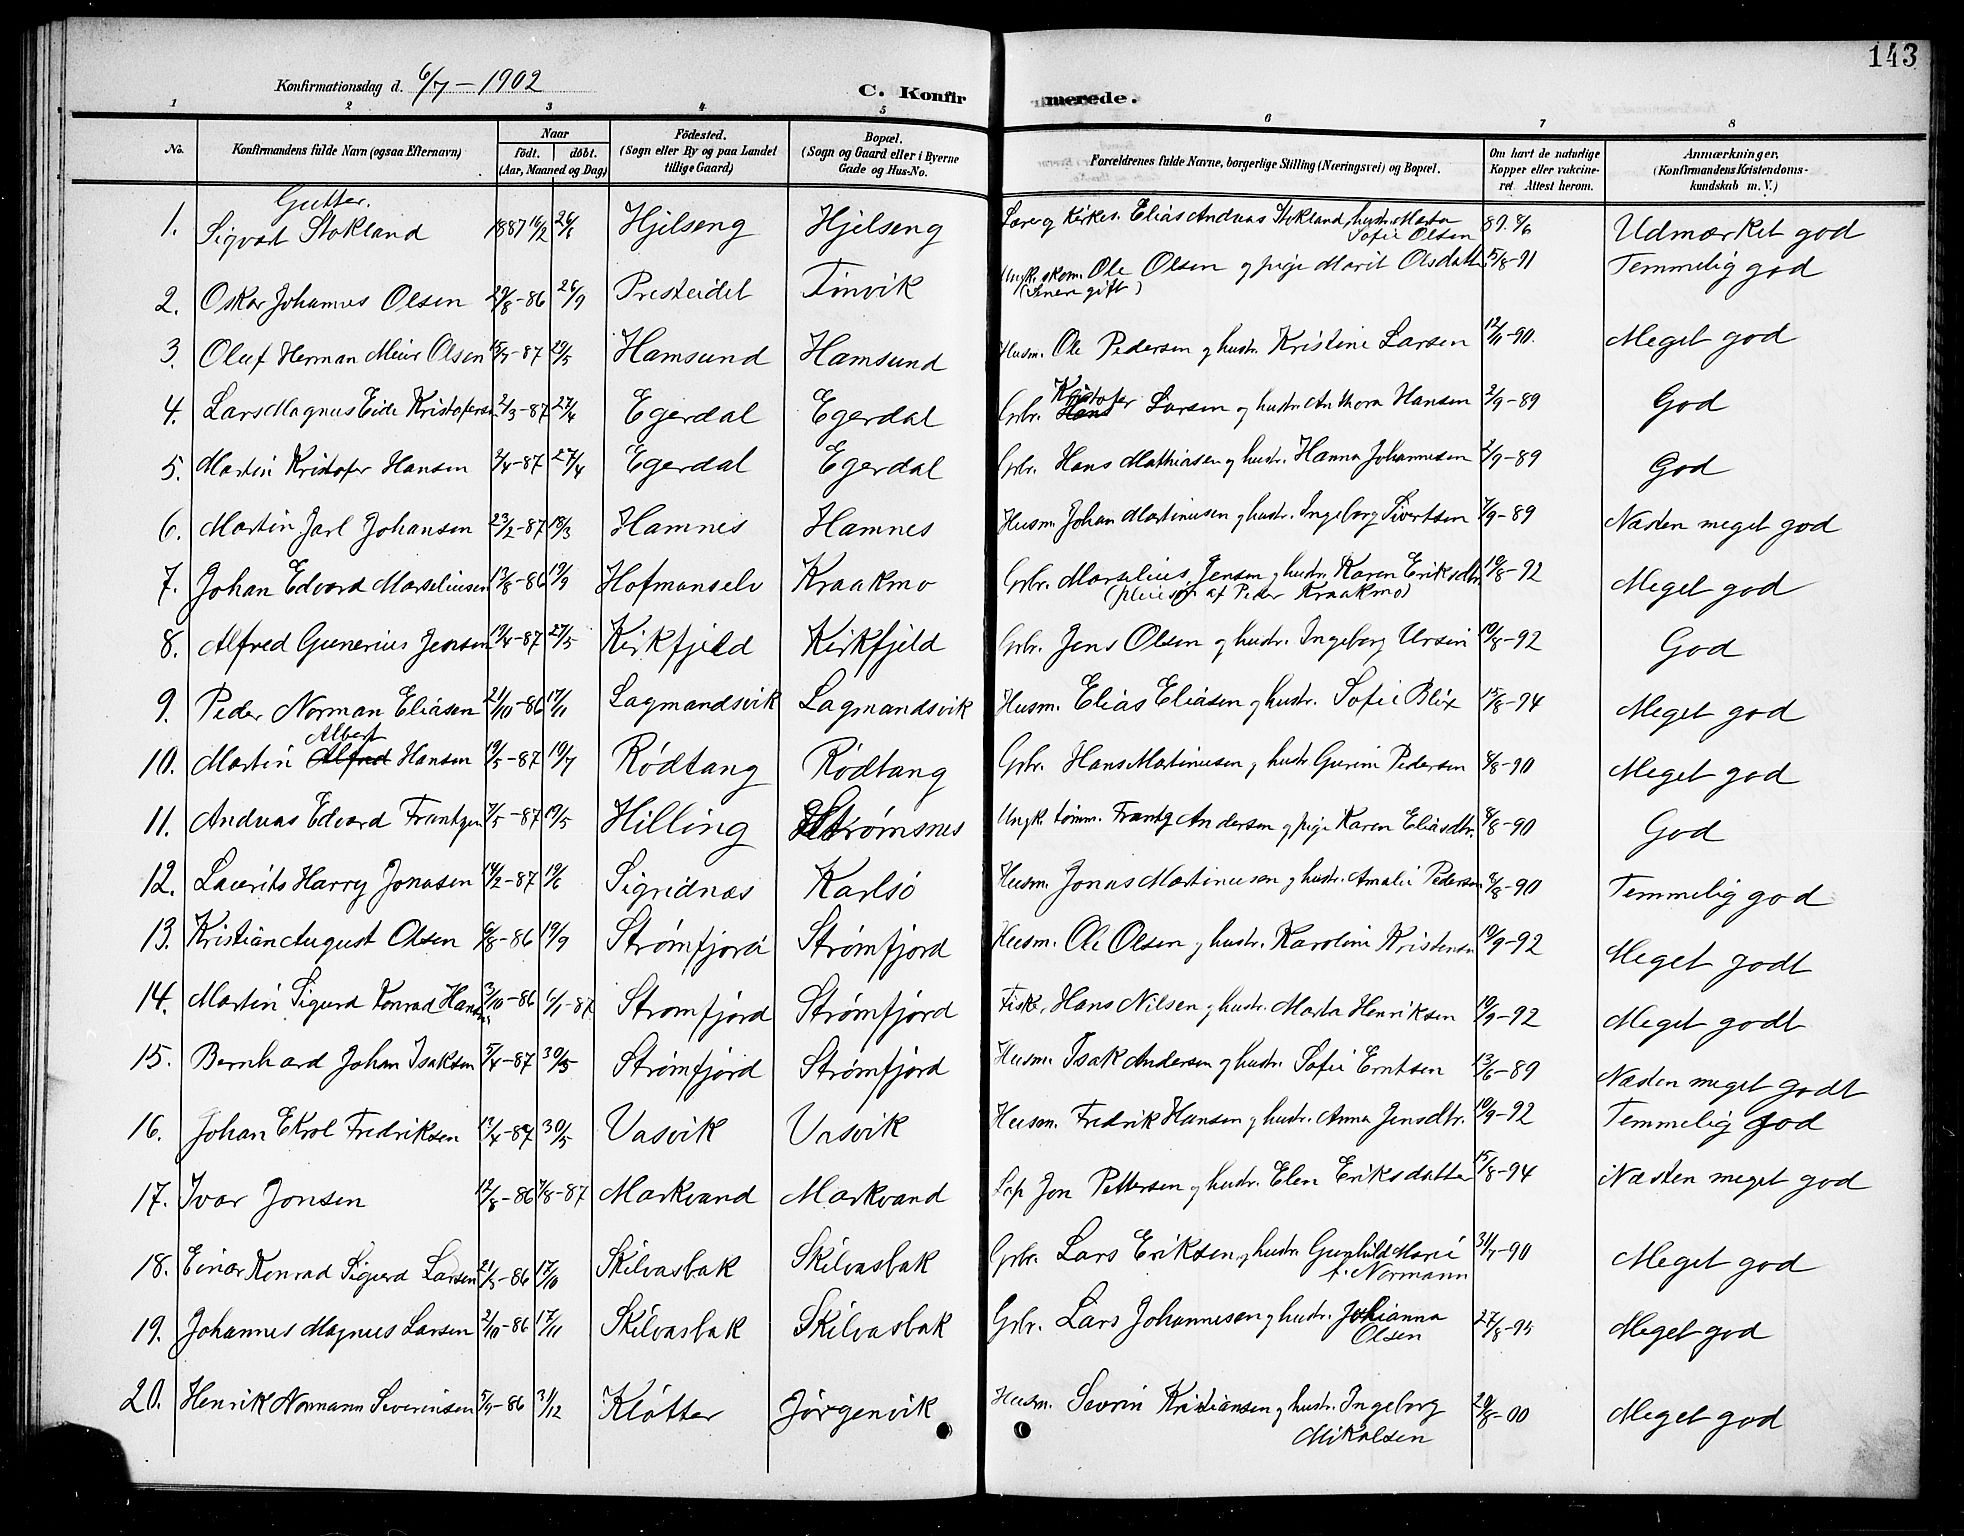 143
Konfirmationsdag d. 6/7 - 1902
C. Konfirmerede.
1 2 3 4 5 6 7 8
No. Konfirmandens fulde Navn (ogsaa Efternavn) Naar födt. döbt. (Aar, Maaned og Dag) Födested. (Sogn eller By og paa Landet tillige Gaard) Bopæl. (Sogn og Gaard eller i Byerne Gade og Hus-No. Forældrenes fulde Navne, borgerlige Stilling (Næringsvei) og Bopæl. Om havt de naturlige Kopper eller vakcineret Attest herom. Anmærkninger, (Konfirmandens Kristendomskundskab m. V.)
Gutter.
1. Sigvart Stokland 1887 16/2 26/6 Hjelseng Hjelseng Lærer og Kirkes. Elias Andreas Stokland, hustr. Marta Sofie Olsen 89. 8/6 Udmærket god
2. Oskar Johannes Olsen 29/8-86 26/9 Presteidet Finvik Ungk. skom. Ole Olsen og pige Marit Olsdatter (senere gift) 5/8-91 Temmelig god
3. Oluf Herman Meier Olsen 87 29/5 Hamsund Hamsund Husm. Ole Pedersen og hustr. Kristine Larsen 90. Meget god
4. Lars Magnus Eide Kristofersen 2/3-87 Egerdal Egerdal Grbr. Kristofer Larsen og hustr. Anthora Hansen 2/9-89 God
5. Martin Kristofer Hansen 2/4-87 27/4 Egerdal Egerdal Grbr. Hans Mathiasen og hustr. Hanna Johannesen 2/9-89 God
6. Martin Jarl Johansen 23/2-87 18/3 Hamnes Hamnes Husm. Johan Martinusen og hustr. Ingeborg Sivertsen 7/9-89 Næsten meget god
7. Johan Edvard Marseliusen 13/8-86 19/9 Hofmanselv Kraakmo Grbr. Marselius Jensen og hustr. Karen Eriksdtr. (pleiesøn af Peder Kraakmo) 19/8-92 Meget god
8. Alfred Gunerius Jensen 87 27/5 Kirkfjeld Kirkfjeld Grbr. Jens Olsen og hustr. Ingeborg Ursin 19/8-92 God
9. Peder Norman Eliasen 21/10-86 17/11 Lagmandsvik Lagmandsvik Husm. Elias Eliasen og hustr. Sofie Blix 15/8-94 Meget god
10. Martin Albert Hansen 19/5-87 19/7 Rödtang Rödtang Grbr. Hans Martinusen og hustr. Gurine Pedersen 8/8-90 Meget god
11. Andreas Edvard Frantzen 7/5-87 19/5 Hilling Strömsnes Ungk. tömm. Frantz Andersen og pige Karen Eliasdtr. 8/8-90 God
12. Laurits Harry Jonasen 14/2-87 19/6 Sigridnæs Karlsö Husm. Jonas Martinusen og hustr. Amalie Pedersen 8/8-90 Temmelig god
13. Kristian August Olsen 6/8-86 19/9 Strömfjord Strömfjord Husm. Ole Olsen og hustr. Karoline Kristensen 19/9-92 Meget godt
14. Martin Sigurd Konrad Hansen 3/10-86 6/1-87 Strömfjord Strömfjord Fisk. Hans Nilsen og hustr. Marta Henriksen 19/9-92 Meget godt
15. Bernhard Johan Isaksen 5/4-87 30/5 Strömfjord Strömfjord Husm. Isak Andersen og hustr. Sofie Erntsen 13/6-89 Næsten meget godt
16. Johan Ekrol Fredriksen 87 30/5 Vasvik Vasvik Husm. Fredrik Hansen og hustr. Anna Jensdtr. 19/9-92 Temmelig god
17. Ivar Jonsen 12/8-86 7/8-87 Markvand Markvand Lap Jon Pettersen og hustr. Elen Eriksdatter 15/8-94 Næsten meget god
18. Einar Konrad Sigurd Larsen 86 17/10 Skilvasbak Skilvasbak Grbr. Lars Eriksen og hustr. Gunhild Marie f. Normann 31/7-90 Meget god
19. Johannes Magnus Larsen 2/10-86 17/11 Skilvasbak Skilvasbak Grbr. Lars Johannesen og hustr. Johianna Olsen 27/8-95 Meget god
20. Henrik Normann Severinsen 86 31/12 Klötter Jörgenvik Husm. Sevrin Kristiansen og hustr. Ingeborg Mikalsen 29/8-00 Meget god